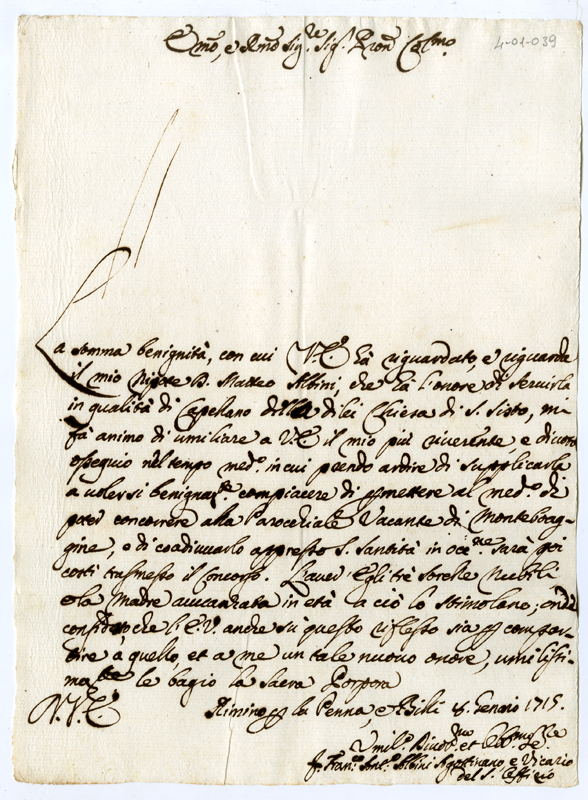 Em̃o, e Rm̃o Sig.re Sig.r Pron̄ Col.mo
4-01-039
La somma benignità, con cui V.E. hà riguardato, e riguarda
il mio Nipote D. Matteo Albini che hà l'onore di servirla
in qualità di Capellano della di lei Chiesa di S. Sisto, mi
fà animo di umiliare a V.E. il mio più riverente, e divoto
ossequio nel tempo med.o in cui prendo ardire di supplicarla
a volersi benignam.te compiacere di permettere al med.o di
poter concorrere alla Parochiale Vacante di
e di coadiuvarlo appresso S. Santità in
trasmesso il Concorso. L'aver Egli trè sorelle Nubili
e la Madre avvanzata in età a ciò lo stimolano, onde
che l'E.V. anche sù questo riflesso sia per
a quello, et a me un tale nuovo onore, umilissi-
mam.te le bagio la Sacra Porpora
D. V. E.
Rimino per la Penna, e Billi 8. Genaro 1715.
Umil.o Divot.mo et
F. Fran.o Ant.o Albini Agostiniano e Vicario
del S. Officio